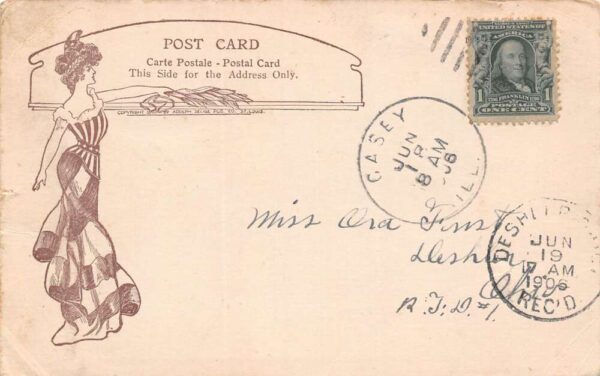 POST CARD
Carte Postale - Postal Card
This Side for the Address Only.
COPYRIGHT BY ADOLPH SELIGE PUB. CO. ST. LOUIS.
UNITED STATES OF AMERICA
FRANKLIN
1 POSTAGE 1
ONE CENT
CASEY
ILL.
JUN
8 AM
06
Miss Ora
Deshler
Ohio
R.F.D. #1.
DESHLER
JUN
19
7 AM
1906
REC'D.